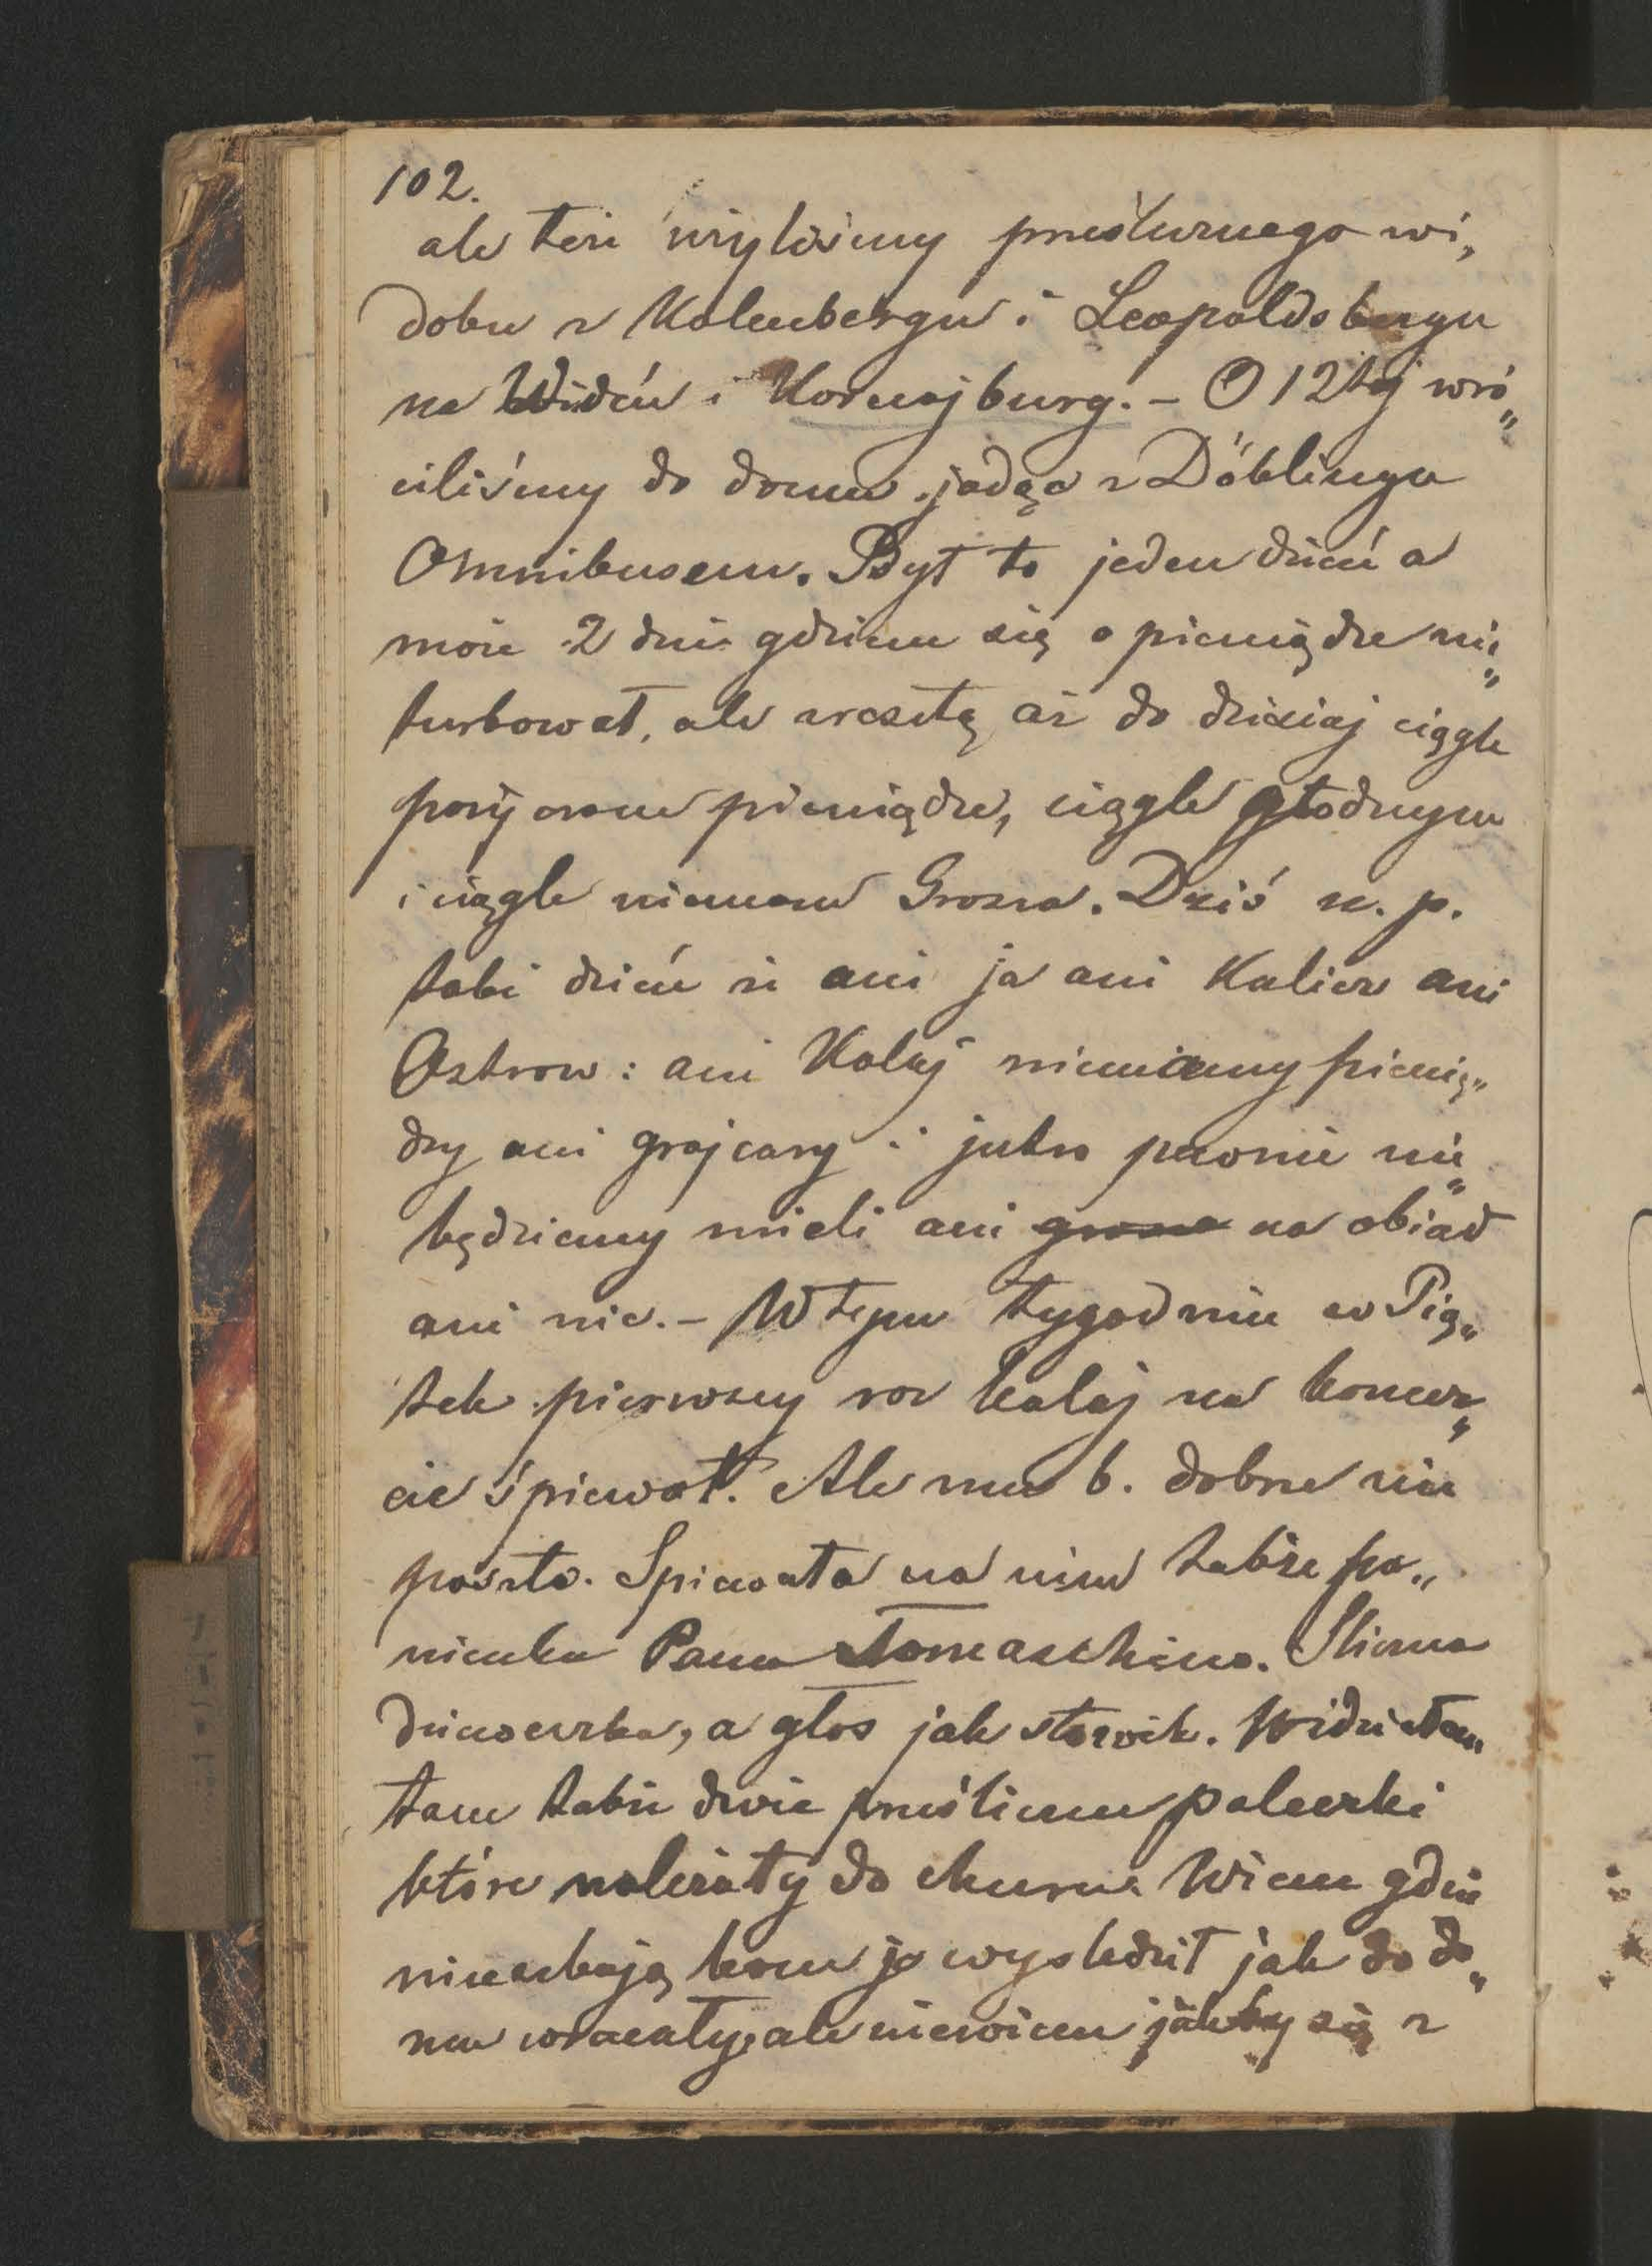 102.
ale też użyliśmy prześlicznego wi„
doku z Kalenbergu i Leopoldsbergu
na Wideń i Kornajburg. – O 12tej wró„
ciliśmy do domu jadąc z Döblingu
Omnibusem. Był to jeden dzień a
może 2 dni gdziem się o pieniądze nie„
turbował, ale zresztą aż do dzisiaj ciągle
pożyczam pieniądze, ciągle głodnym
i ciągle niemam Grosza. Dziś n. p.
taki dzień że ani ja ani Kalicz ani
Ostrow: ani Kolaj niemamy pienię„
dzy ani grajcary i jutro pewnie nie„
będziemy mieli ani grosza na obiad
ani nic. – W tym tygodniu w Pią„
tek pierwszy raz Kolaj na koncer„
cie śpiewał. Ale mu b. dobrze nie
poszło. Spiewała na nim także pa„
nienka Pana Tomaschina. Sliczna
dziewczka, a głos jak słowik. Widziałem
tam takie dwie prześliczne poleczki
które należały do churu. Wiem gdzie
mieszkają bom je wysledził jak do do„
mu wracały, ale niewiem jakby się z